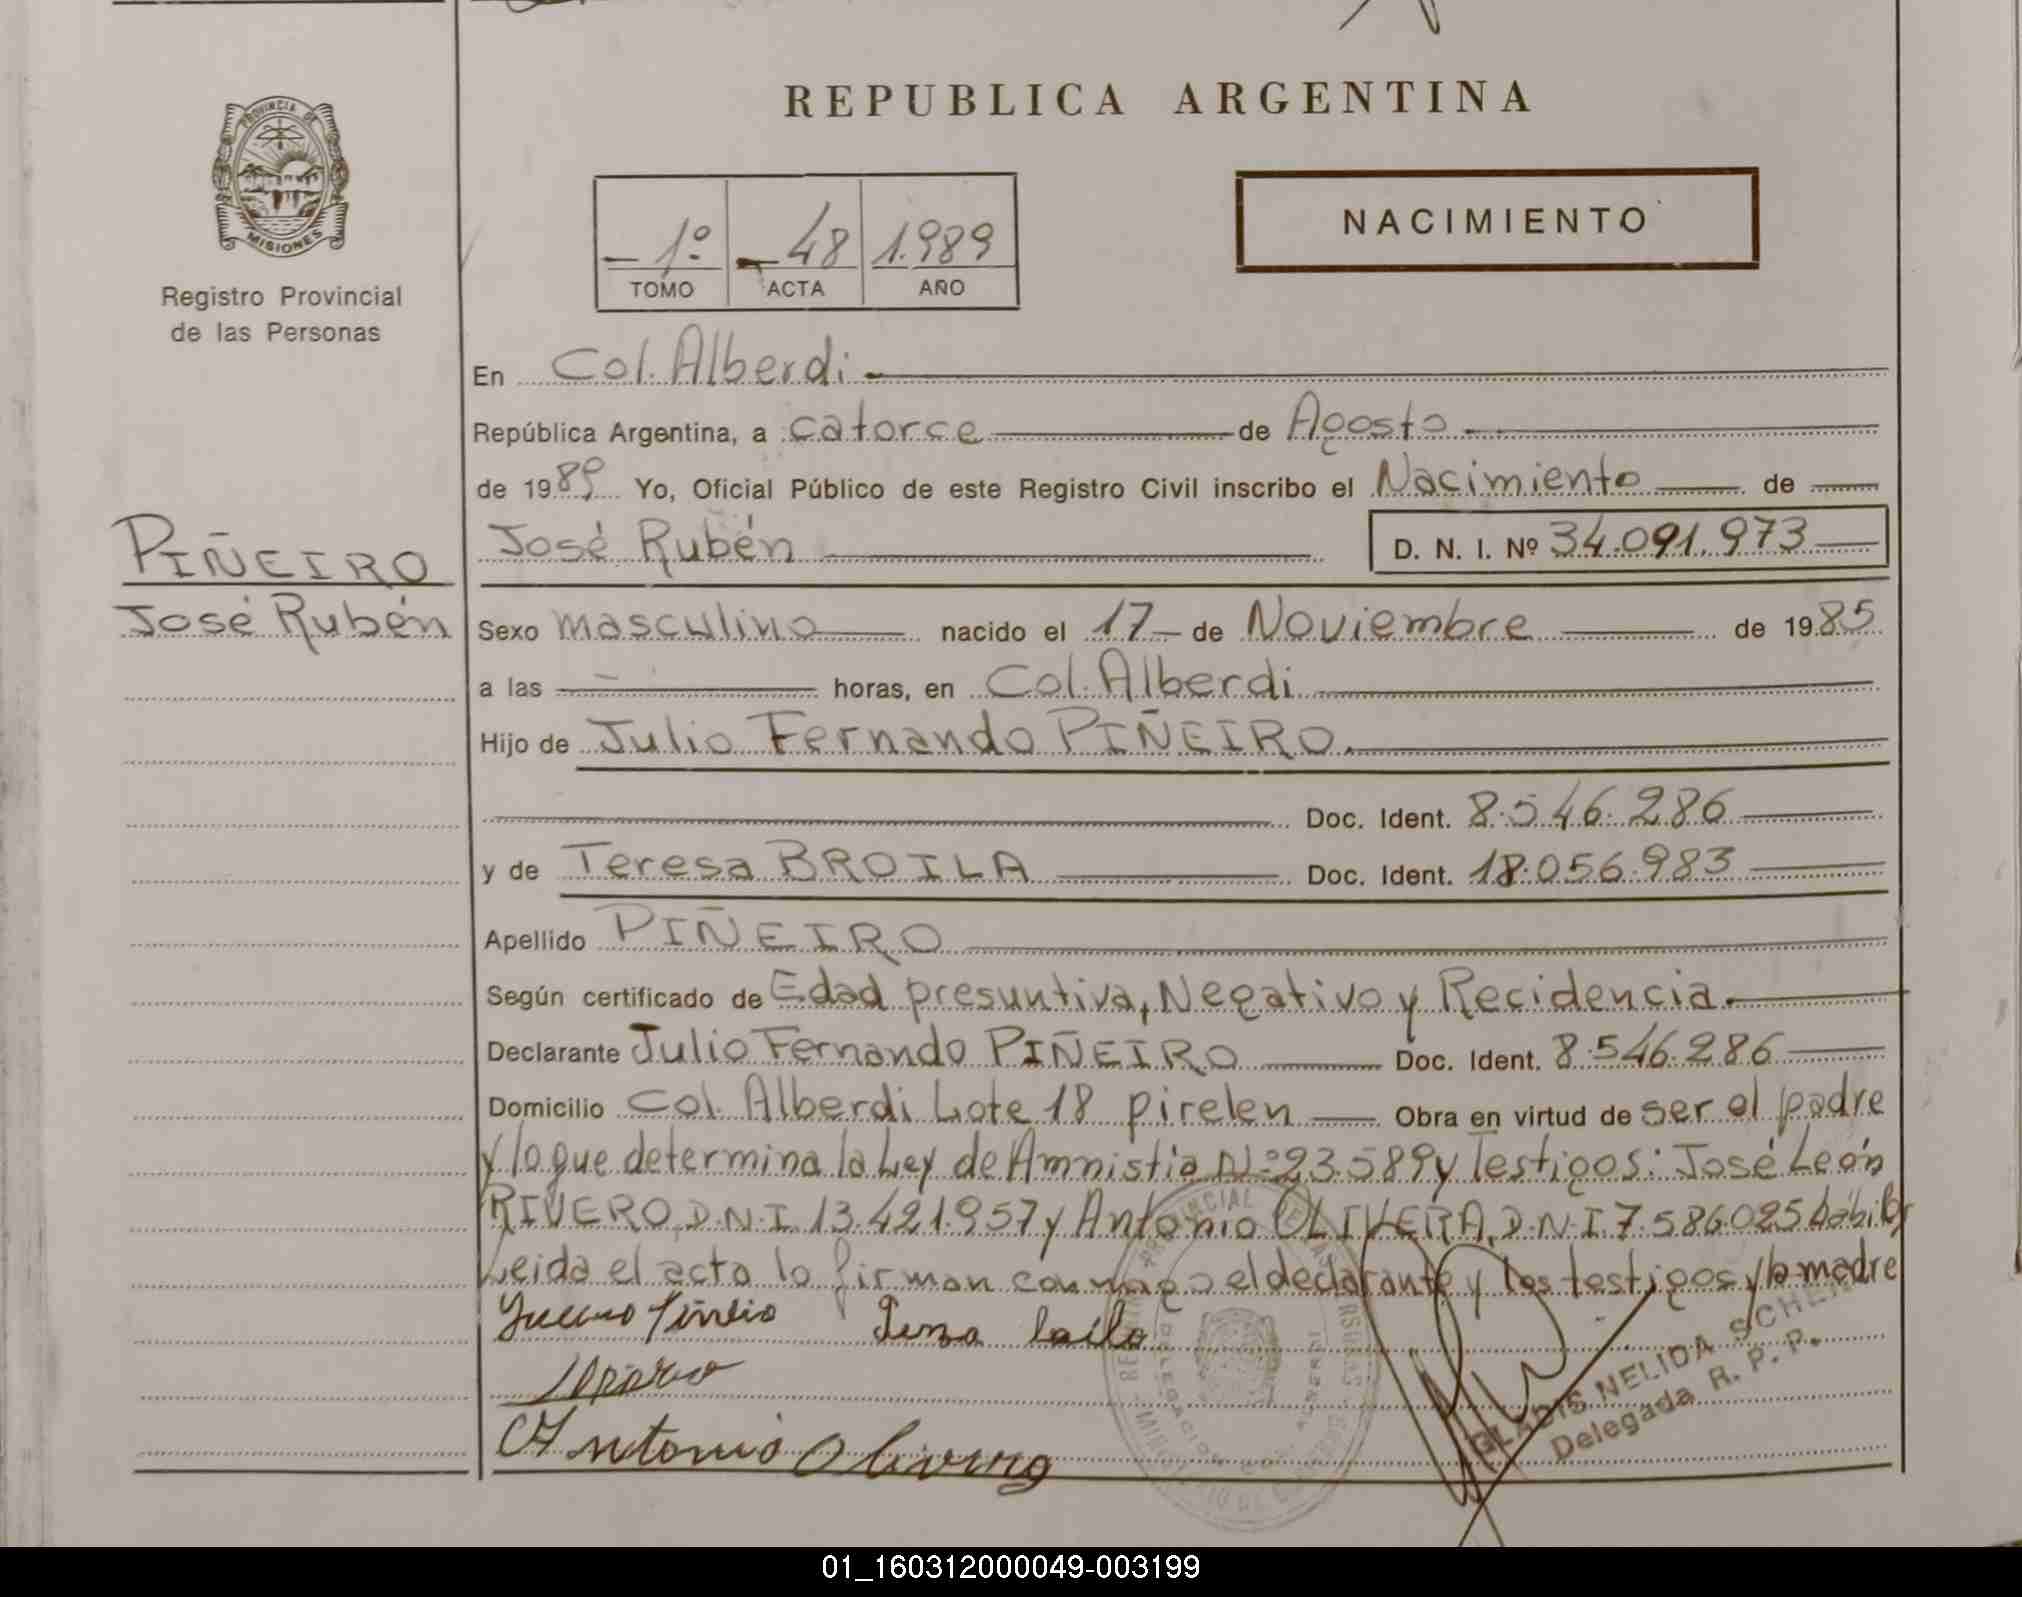 REPUBLICA ARGENTINA
PROVINCIA DE MISIONES
Registro Provincial
de las Personas
1º 48 1.989
TOMO ACTA AÑO
NACIMIENTO
PIÑEIRO
José Rubén
En Col. Alberdi
República Argentina, a catorce de Agosto
de 1989 Yo, Oficial Público de este Registro Civil inscribo el Nacimiento de
José Rubén D. N. I. Nº 34.091.973
Sexo masculino nacido el 17 de Noviembre de 1985
a las horas, en Col. Alberdi
Hijo de Julio Fernando PIÑEIRO.
Doc. Ident. 8.546.286
y de Teresa BROILA Doc. Ident. 18.056.983
Apellido PIÑEIRO
Según certificado de Edad presuntiva, Negativo y Recidencia.
Declarante Julio Fernando PIÑEIRO Doc. Ident. 8.546.286
Domicilio Col. Alberdi Lote 18 pirelen Obra en virtud de ser el padre
y lo que determina la Ley de Amnistia Nº 23.589 y Testigos: José León
RIVERO, D.N.I. 13.421.957 y Antonio OLIVERA, D.N.I. 7.586.025 hábiles
Leida el acta lo firman conmigo el declarante y los testigos y la madre
Antonio
GLADIS NELIDA
Delegada R. P. P.
01_160312000049-003199